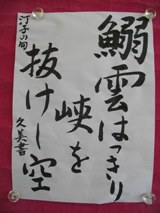 鰯雲はっきり
峡を
抜けし空
汀子の句
久美書